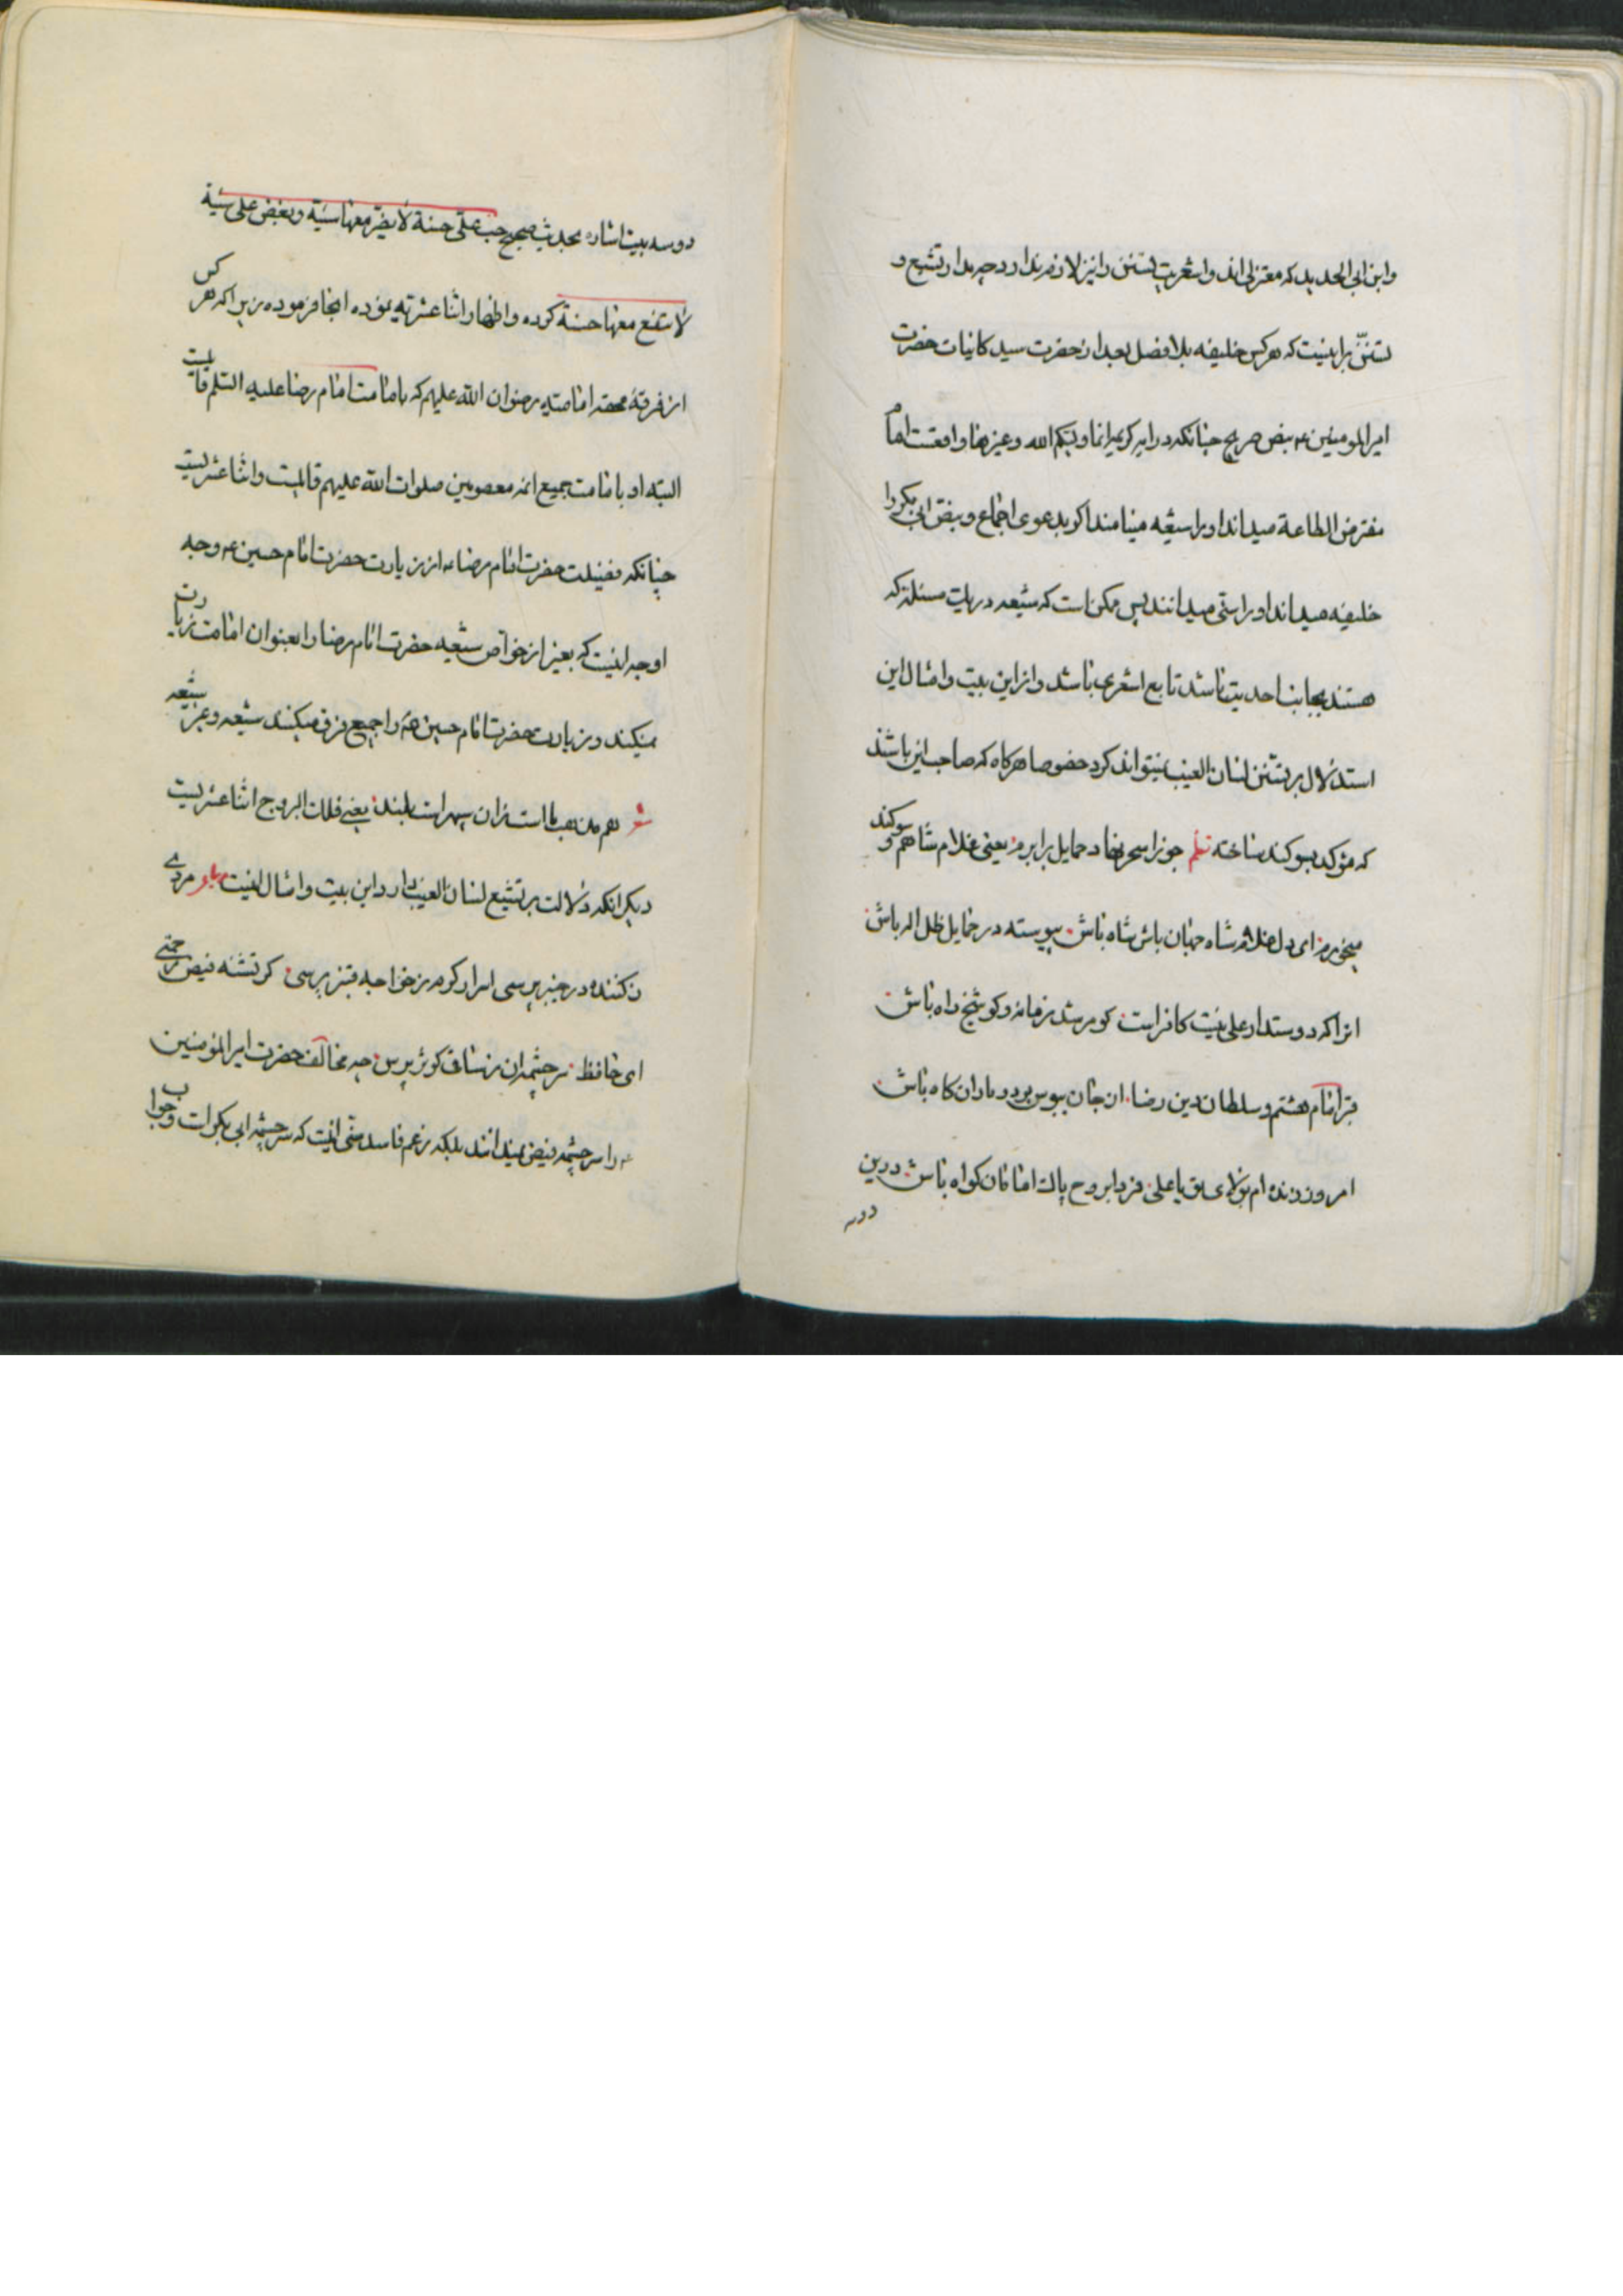 وابن ابی الحدید که معتزلی اند و اشعریت تسنن را نیز لازم ندارد چه مدار تشیع و
تسنن براینست که هر کس خلیفه بلا فصل بعد از حضرت سید کاینات حضرت
امیر المومنین ع بنص صریح چنانکه در ایه کریمه انما ولیکم الله و غیرها واقعست امام
مفترض الطاعة میداند او را شیعه مینامند اکر بدعوی اجماع و بنص ابی بکر را
خلیفه میداند او را سنی میدانند پس ممکن است که شیعه در یک مسئله که
هستند بجانب احدیت باشد تابع اشعری باشد و از این بیت و امثال این
استدلال بر تسنن لسان الغیب نمیتواند کرد خصوصا هرکاه که صاحب این باشد
که مؤکد بسوکند ساخته نظم جوزا سحر نهاد حمایل برابرم یعنی غلام شاهم و سوکند
میخورم ای دل غلام شاه جهان باش شاه باش پیوسته در حمایل ظل اله باش
انرا که دوستدار علی نیست کافر است کو مرشد زمانه و کو شیخ راه باش
قبر امام هشتم و سلطان دین رضا از جان ببوس بر در ماران کاه باش
امروز زنده ام بولای تو یا علی فردا بروح پاک امامان کواه باش درین
دوسه
دوسه بیت اشاره بحدیث صحیح حب علی حسنة لا یضر معها سیئة و بغض علی سیئة
لا تنفع معها حسنة کرده و اظهار اثنا عشریه نموده اینجا فرموده زیرا که هر کس
از فرقهٔ محقه امامیه رضوان الله علیهم که بامامت امام رضا علیه السلم قایلست
البته او بامامت جمیع ائمه معصومین صلوات الله علیهم قایلست و اثنا عشریست
چنانکه فضیلت حضرت امام رضا ع از زیارت حضرت امام حسین ع وجه
اوجه اینست که بغیر از خواص شیعه حضرت امام رضا را بعنوان امامت زیارت
نمیکنند و زیارت حضرت امام حسین ع را جمیع فرق میکنند شیعه و غیر شیعه
شعر هم مذهب ما است زان سپهر است بلند یعنی فلک البروج اثنا عشریست
دیکر انکه دلالت بر تشیع لسان الغیب دارد این بیت و امثال اینست رباعی مردی
ز کننده در خیبر پرسی اسرار کرم ز خواجه قنبر پرسی کر تشنه فیض رحمتی
ای حافظ سر چشمه ان ز ساقی کوثر پرس چه مخالف حضرت امیر المؤمنین
ع را سرچشمه فیض نمیدانند بلکه بزعم فاسد سنی اینست که سرچشمه ابی بکر است و جواب